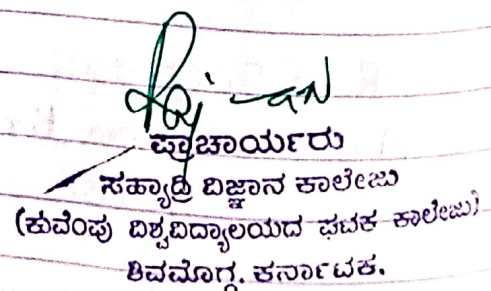 ಪ್ರಾಚಾರ್ಯರು
ಸಹ್ಯಾದ್ರಿ ವಿಜ್ಞಾನ ಕಾಲೇಜು
(ಕುವೆಂಪು ವಿಶ್ವವಿದ್ಯಾಲಯದ ಘಟಕ ಕಾಲೇಜು)
ಶಿವಮೊಗ್ಗ. ಕರ್ನಾಟಕ.